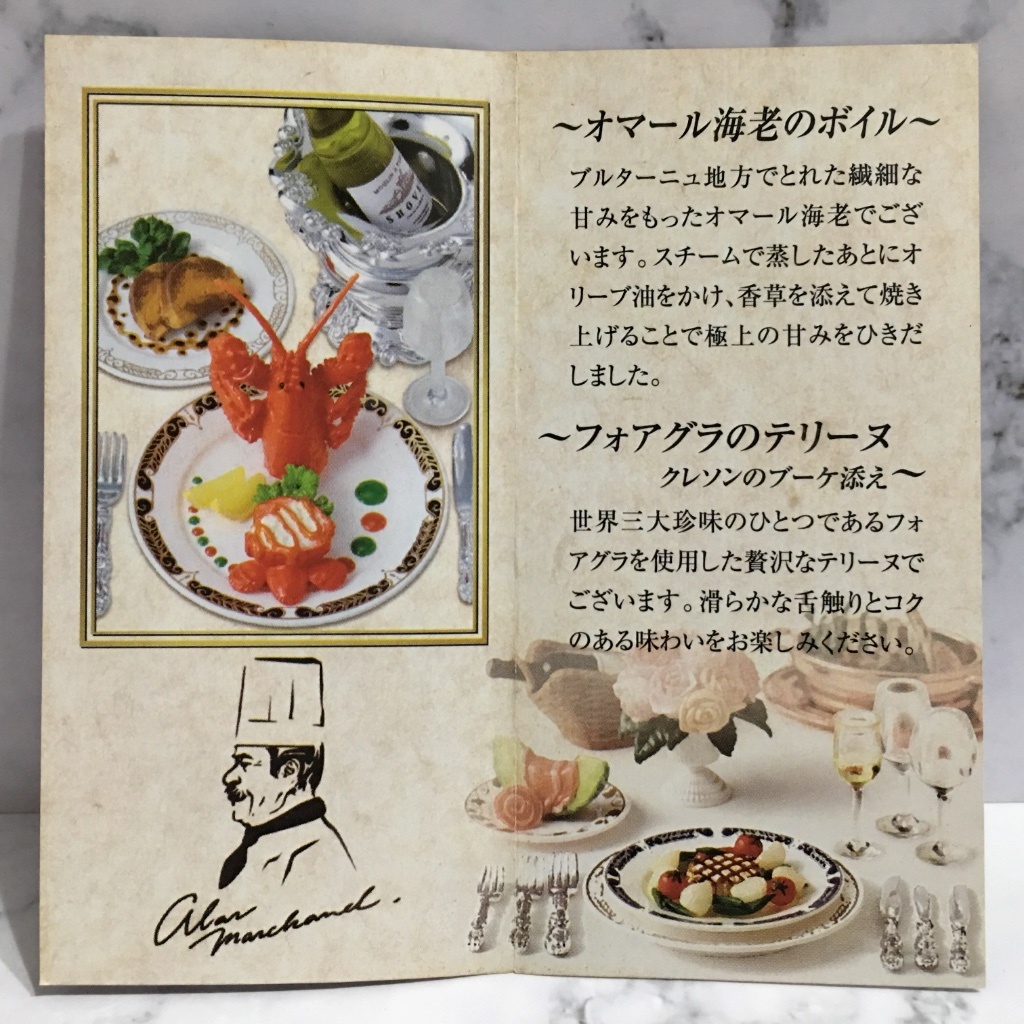 SHOV
Alan
Marchand.
～オマール海老のボイル～
ブルターニュ地方でとれた繊細な
甘みをもったオマール海老でござ
います。スチームで蒸したあとにオ
リーブ油をかけ、香草を添えて焼き
上げることで極上の甘みをひきだ
しました。
～フォアグラのテリーヌ
クレソンのブーケ添え～
世界三大珍味のひとつであるフォ
アグラを使用した贅沢なテリーヌで
ございます。滑らかな舌触りとコク
のある味わいをお楽しみください。